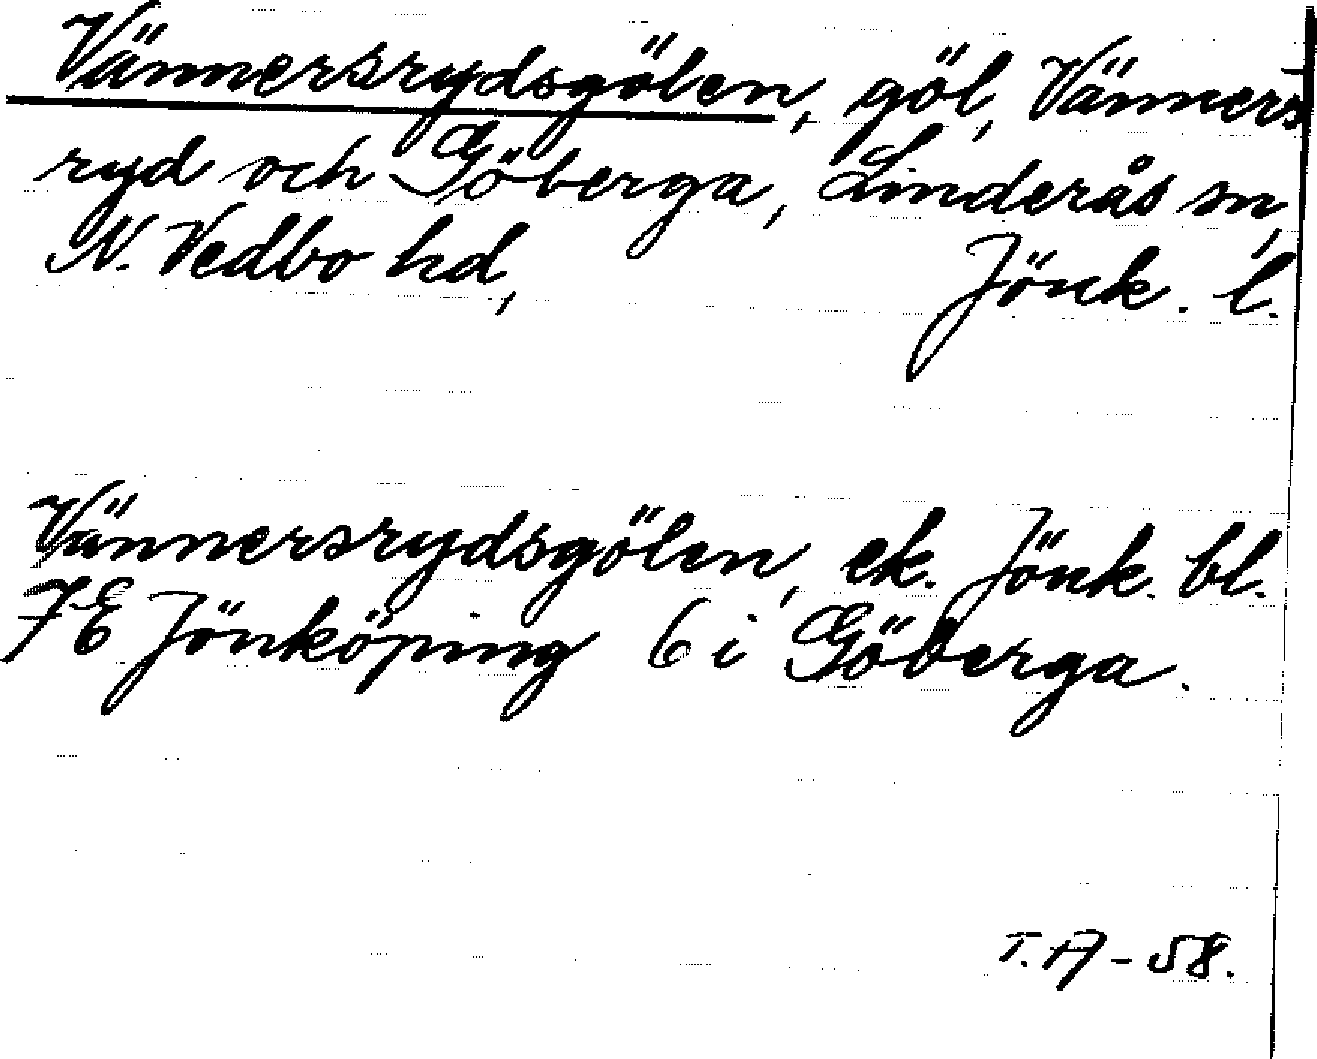 Vännersrydsgölen, göl, Vänners
ryd och Göberga, Linderås sn,
N. Vedbo hd, Jönk. l.
Vännersrydsgölen, ek. Jönk. bl.
7E Jönköping 6 i Göberga.
T.A-58.